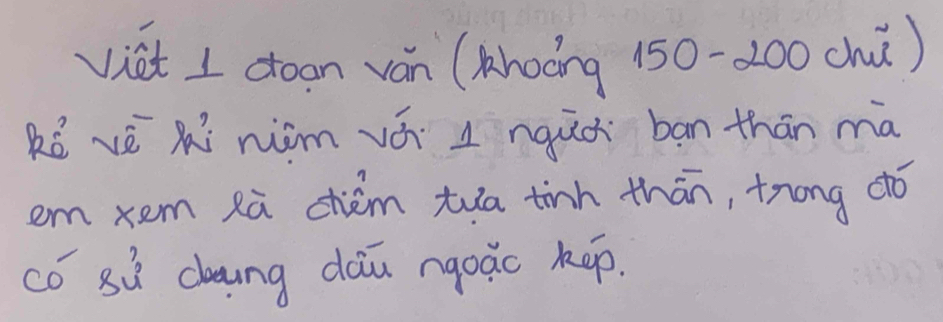 Viết 1 đoạn văn (khoảng 150-200 chữ)
kể về kỉ niệm với 1 người bạn thân mà
em xem là điểm tựa tinh thần, trong đó
có sử dụng dấu ngoặc kép.